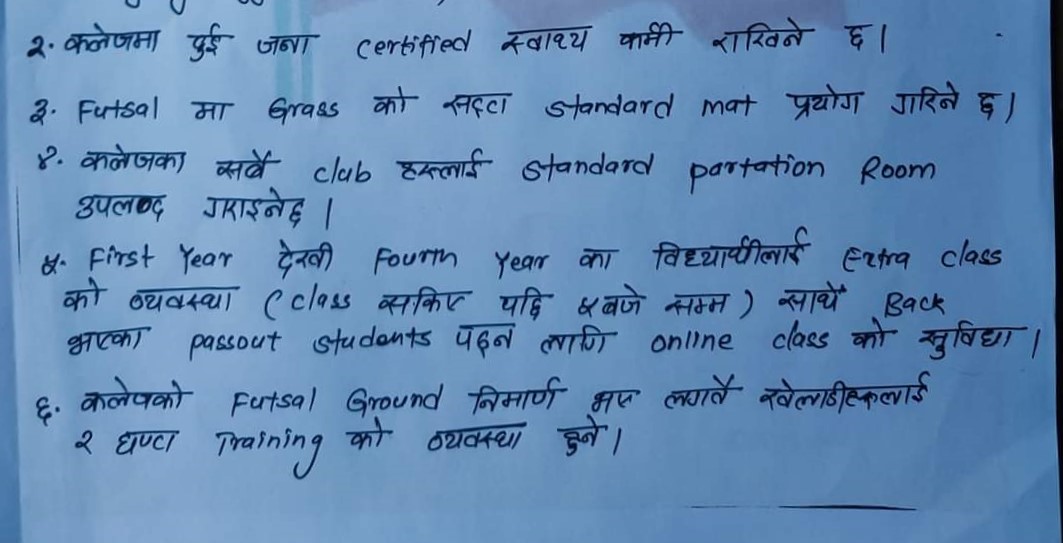 २. कलेजमा दुई जना certified स्वाथ्य कर्मी राखिने छ।
३. Futsal मा Grass को सट्टा standard mat प्रयोग गरिने छ।
४. कलेजका सवै club हरुलाई standard partation Room
उपलव्द गराइनेछ।
५. First Year देखी Fourth Year का विद्यार्थीलाई Extra class
को व्यवस्था (class सकिए पछि ५ बजे सम्म) साथै Back
भएका passout students पढ्न लागि online class को सुविधा।
६. कलेजको Futsal Ground निमार्ण भए लगतै खेलाडीहरुलाई
२ घण्टा Training को व्यवस्था हुने।